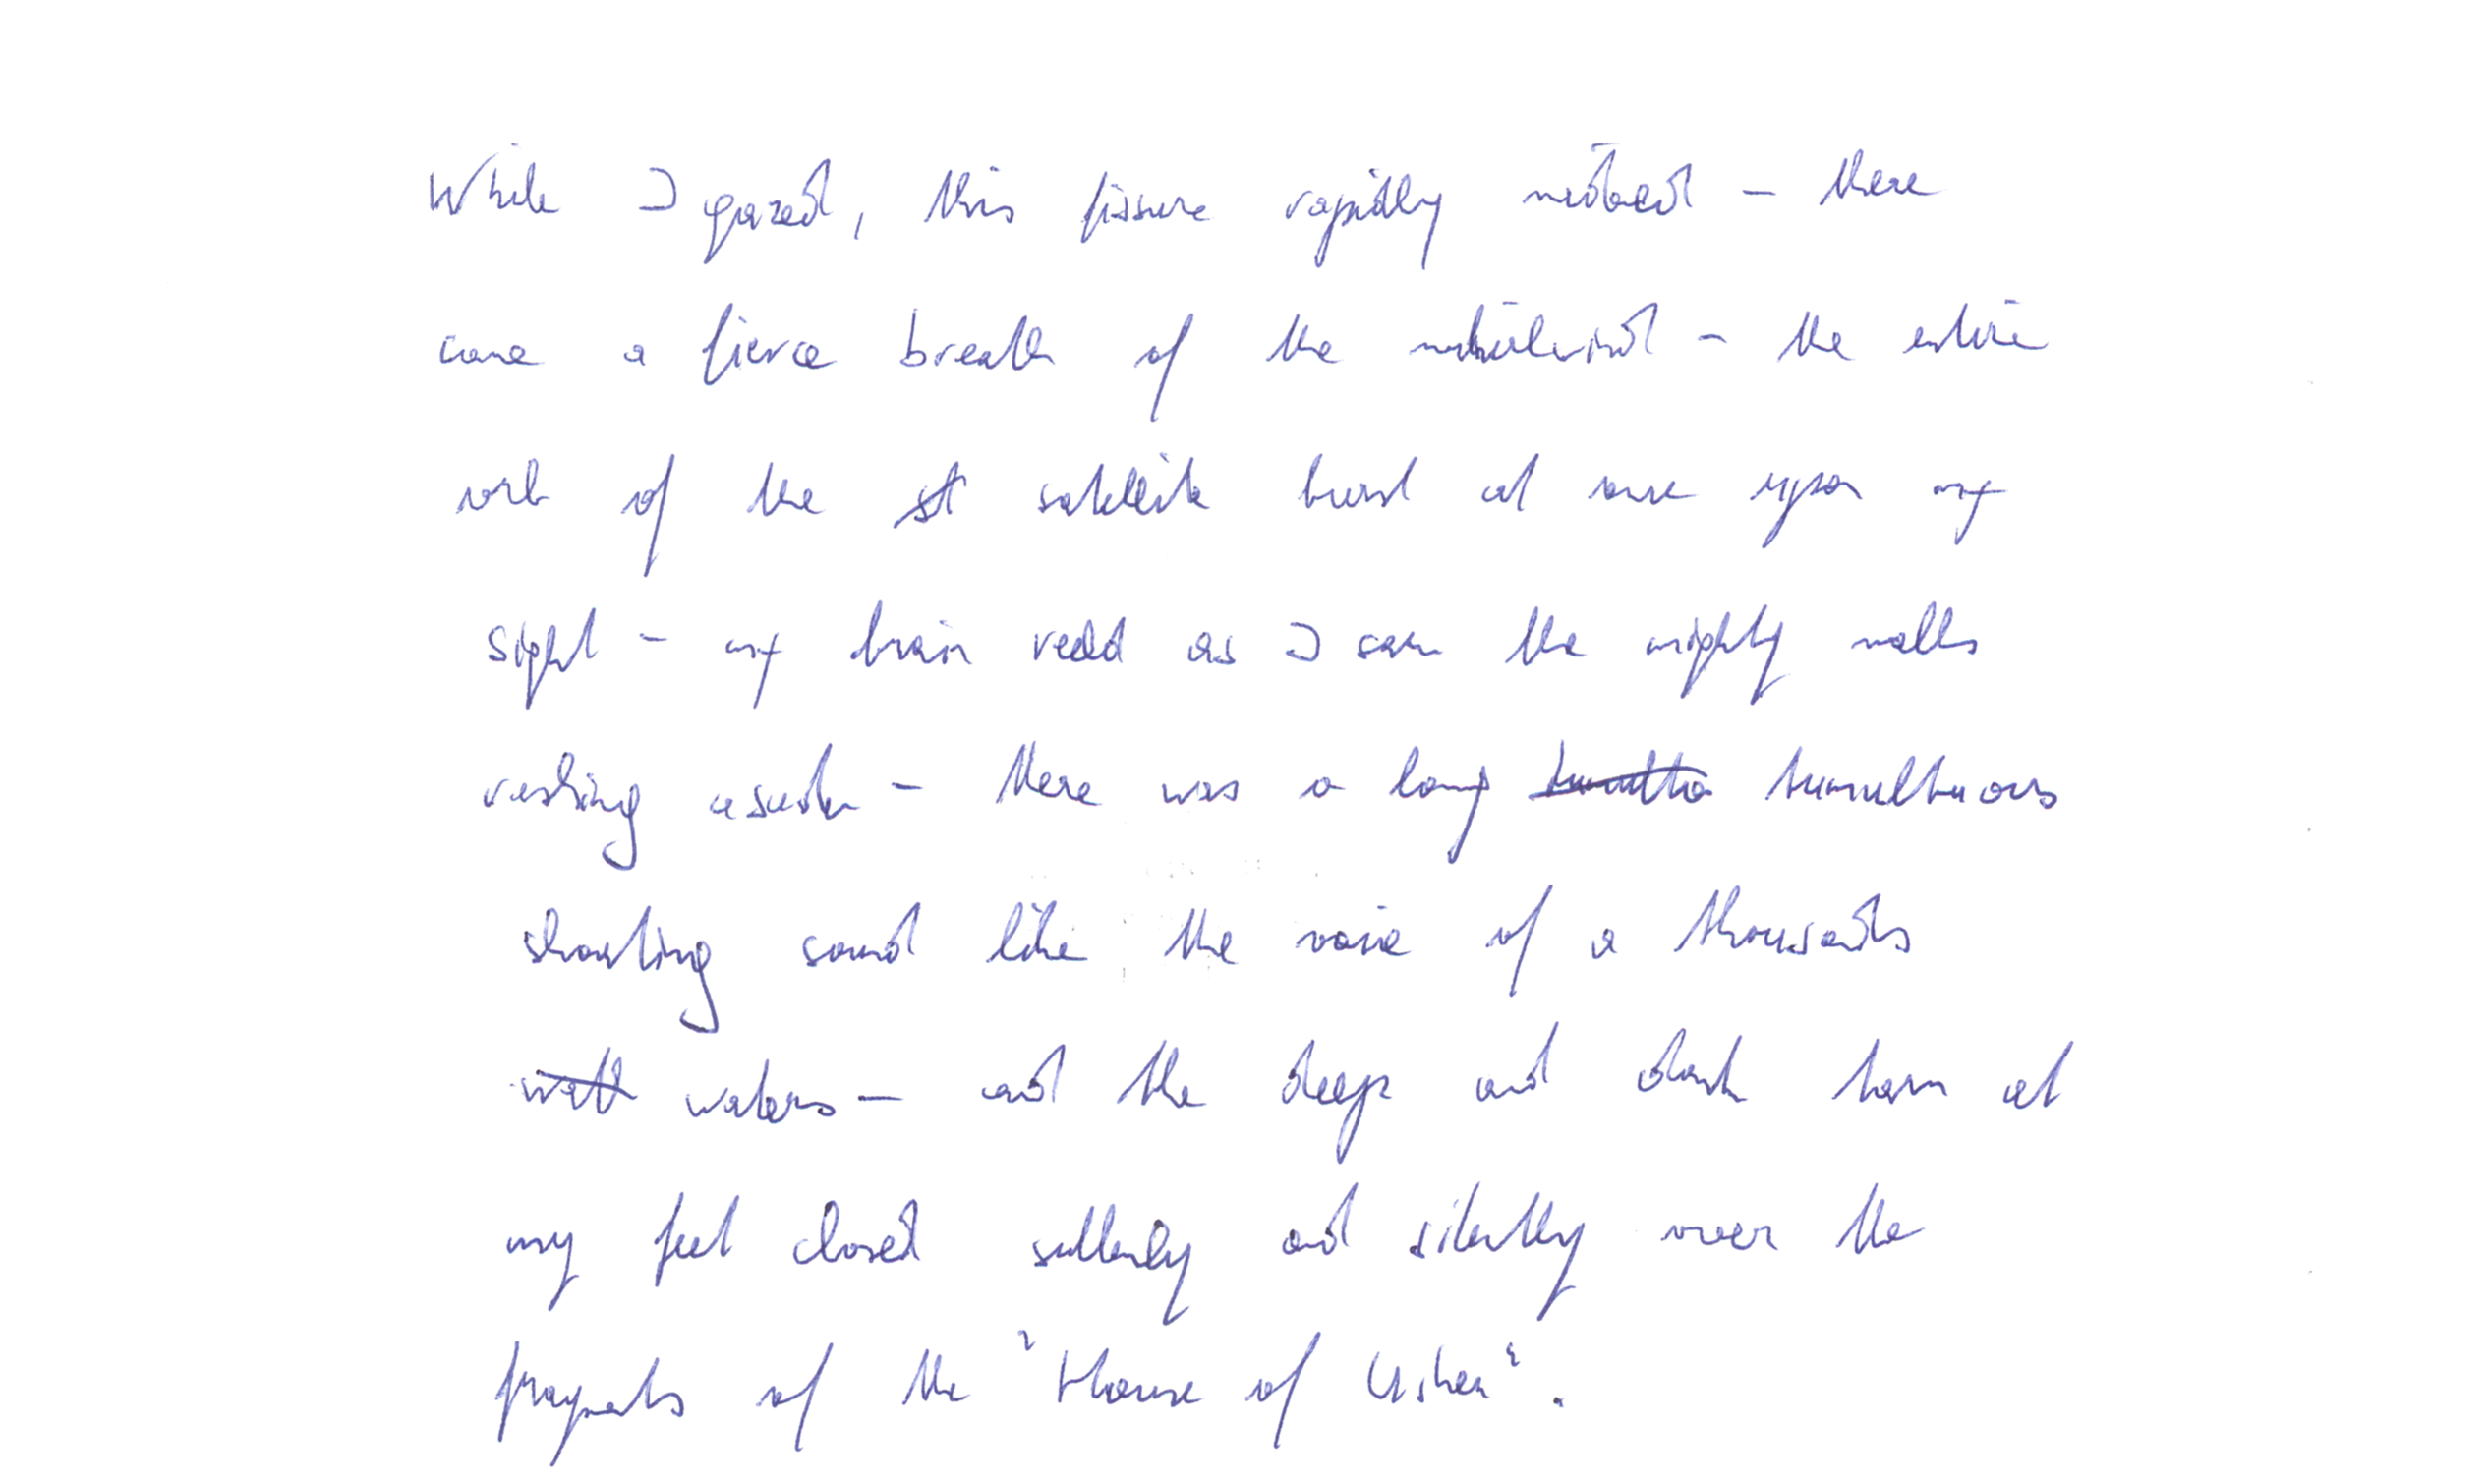 While I gazed, this fissure rapidly widened - there
came a fierce breath of the whirlwind - the entire
orb of the st satellite burst at once upon my
sight - my brain reeled as I saw the mighty walls
rushing asunder - there was a long tumultuous
shouting sound like the voice of a thousands
watt waters - and the deep and dank tarn at
my feet closed sullenly and silently over the
fragments of the "House of Usher".